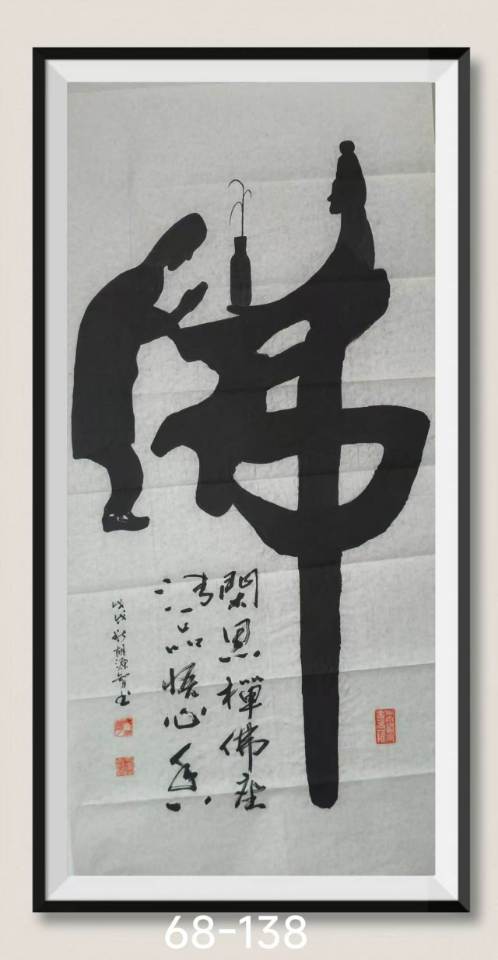 佛
閑思禪佛座
清品悟心香
戊戌秋
68-138